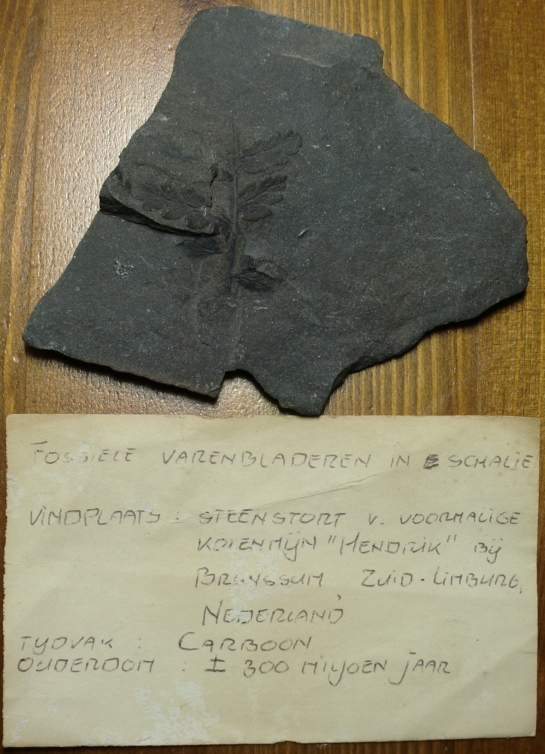 FOSSIELE VARENBLADEREN IN SCHALIE
VINDPLAATS : STEENSTORT V. VOORMALIGE
KOLENMIJN "HENDRIK" BIJ
BRUNSSUM ZUID-LIMBURG,
NEDERLAND
TYDVAK : CARBOON
OUDERDOM : ± 300 MILJOEN JAAR